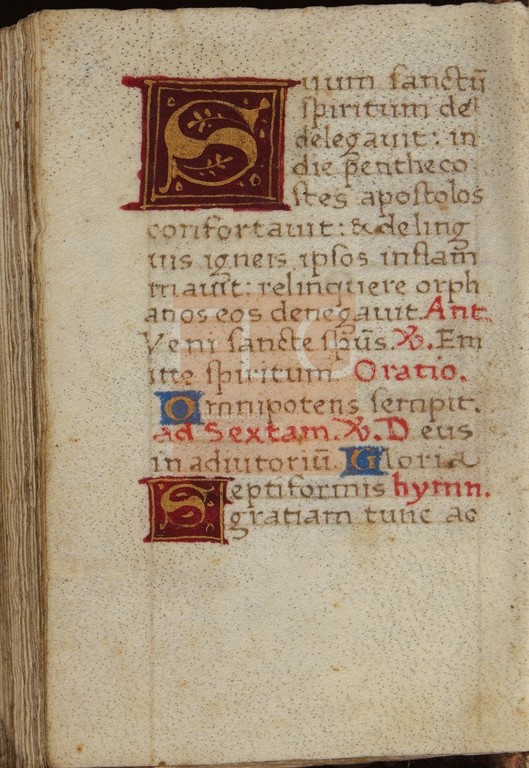 Suum sanctū
spiritum de
delegauit: in
die pentheco
stes apostolos
confortauit: & deling
uis igneis ipsos inflam
mauit: relinquere orph
anos eos denegauit. Ant.
Veni sancte spūs. ℟. Em
itte spiritum. Oratio.
Omnipotens sempit.
ad Sextam. ℟. Deus
in adiutoriū. Gloria
Septiformis hymn.
gratiam tunc ac